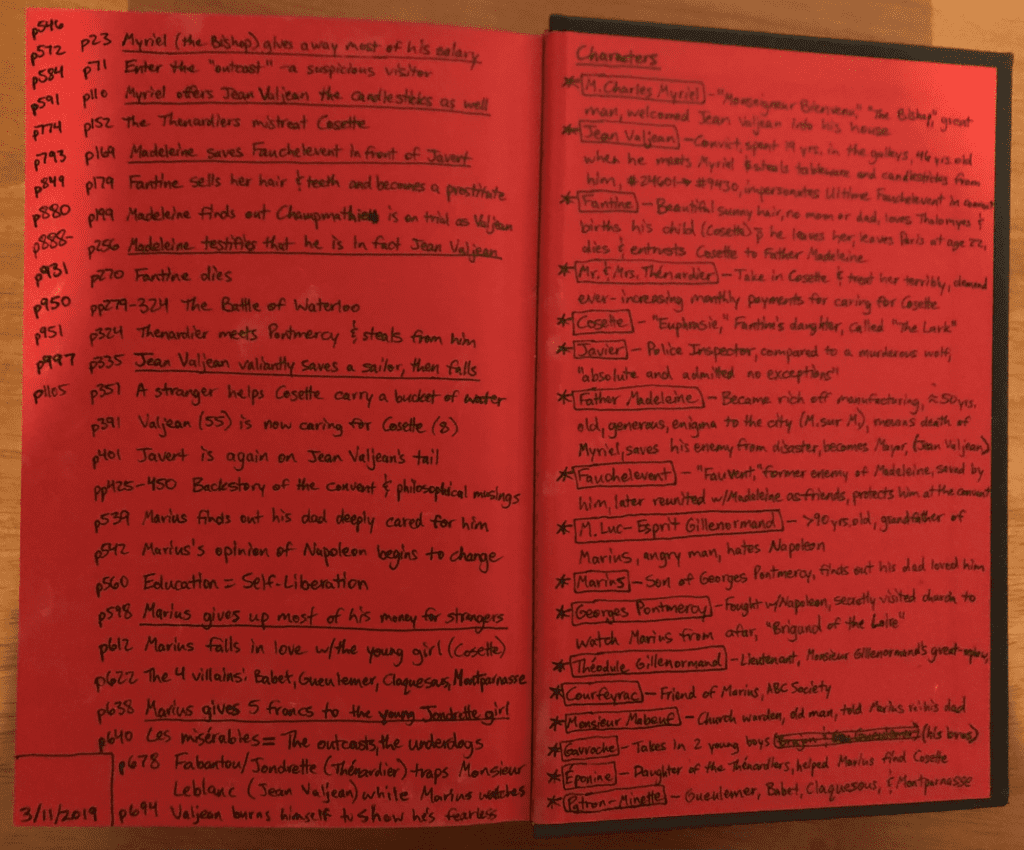 p546
p572
p584
p591
p774
p793
p849
p880
p888-
p931
p950
p951
p997
p1105
p23 Myriel (the Bishop) gives away most of his salary
p71 Enter the "outcast" - a suspicious visitor
p110 Myriel offers Jean Valjean the candlesticks as well
p152 The Thenardiers mistreat Cosette
p169 Madeleine saves Fauchelevent in front of Javert
p179 Fantine sells her hair & teeth and becomes a prostitute
p199 Madeleine finds out Champmathieu is on trial as Valjean
p256 Madeleine testifies that he is in fact Jean Valjean
p270 Fantine dies
pp279-324 The Battle of Waterloo
p324 Thenardier meets Pontmercy & steals from him
p335 Jean Valjean valiantly saves a sailor, then falls
p357 A stranger helps Cosette carry a bucket of water
p391 Valjean (55) is now caring for Cosette (8)
p401 Javert is again on Jean Valjean's tail
pp425-450 Backstory of the convent & philosophical musings
p539 Marius finds out his dad deeply cared for him
p542 Marius's opinion of Napoleon begins to change
p560 Education = Self-Liberation
p598 Marius gives up most of his money for strangers
p612 Marius falls in love w/the young girl (Cosette)
p622 The 4 villains: Babet, Gueulemer, Claquesous, Montparnasse
p638 Marius gives 5 francs to the young Jondrette girl
p640 Les misérables = The outcasts, the underdogs
p678 Fabantou/Jondrette (Thénardier) traps Monsieur
Leblanc (Jean Valjean) while Marius watches
p694 Valjean burns himself to show he's fearless
3/11/2019
Characters
* M. Charles Myriel - "Monseigneur Bienvenu," "The Bishop," great
man, welcomed Jean Valjean into his house
* Jean Valjean - Convict, spent 19 yrs. in the galleys, 46 yrs. old
when he meets Myriel & steals tableware and candlesticks from
him, #24601 → #9430, impersonates Ultime Fauchelevent in convent
* Fantine - Beautiful sunny hair, no mom or dad, loves Tholomyes &
births his child (Cosette) & he leaves her, leaves Paris at age 22,
dies & entrusts Cosette to Father Madeleine
* Mr. & Mrs. Thénardier - Take in Cosette & treat her terribly, demand
ever-increasing monthly payments for caring for Cosette
* Cosette - "Euphrasie," Fantine's daughter, called "The Lark"
* Javier - Police Inspector, compared to a murderous wolf,
"absolute and admitted no exceptions"
* Father Madeleine - Became rich off manufacturing, ≈50 yrs.
old, generous, enigma to the city (M. sur M.), mourns death of
Myriel, saves his enemy from disaster, becomes Mayor, (Jean Valjean)
* Fauchelevent - "Fauvent," former enemy of Madeleine, saved by
him, later reunited w/Madeleine as friends, protects him at the convent
* M. Luc-Esprit Gillenormand - >90 yrs. old, grandfather of
Marius, angry man, hates Napoleon
* Marius - Son of Georges Pontmercy, finds out his dad loved him
* Georges Pontmercy - Fought w/Napoleon, secretly visited church to
watch Marius from afar, "Brigand of the Loire"
* Théodule Gillenormand - Lieutenant, Monsieur Gillenormand's great-nephew,
* Courfeyrac - Friend of Marius, ABC Society
* Monsieur Mabeuf - Church warden, old man, told Marius re: his dad
* Gavroche - Takes in 2 young boys (his bros)
* Éponine - Daughter of the Thénardiers, helped Marius find Cosette
* Patron-Minette - Gueulemer, Babet, Claquesous, & Montparnasse